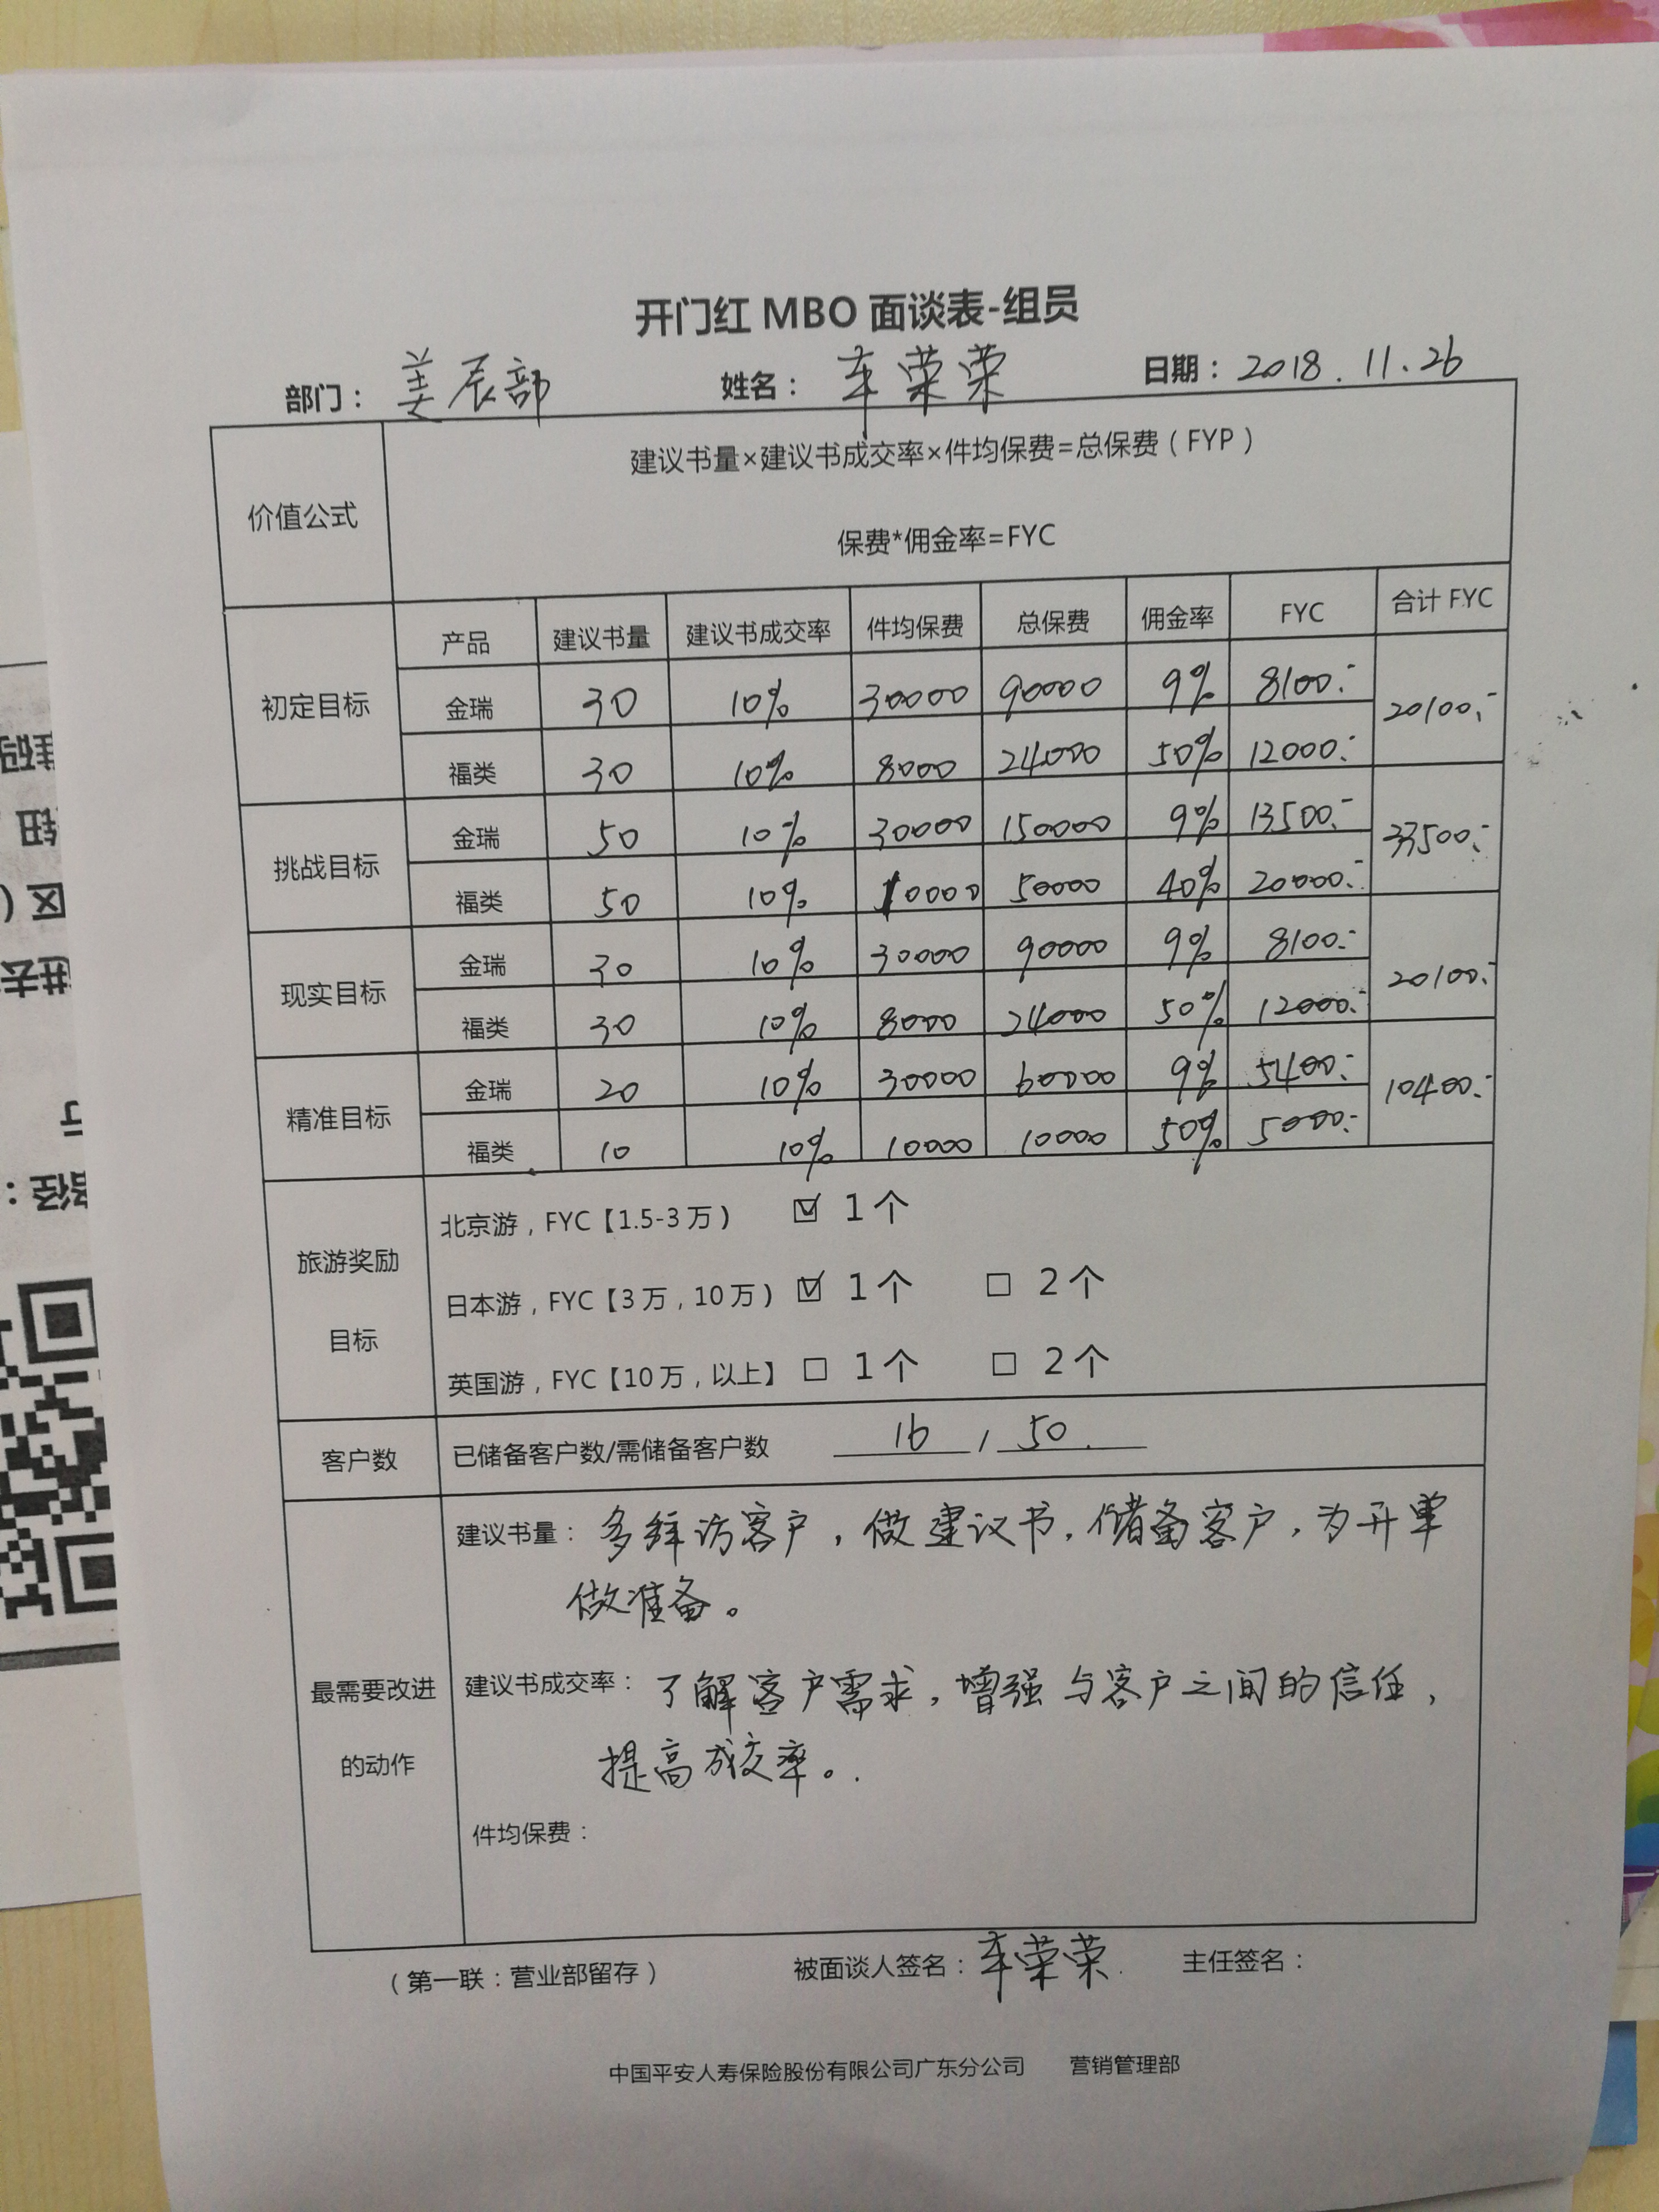 开门红 MBO 面谈表-组员
部门： 美辰部 姓名： 车荣荣 日期： 2018.11.26
价值公式
建议书量×建议书成交率×件均保费=总保费（FYP）
保费*佣金率=FYC
产品 建议书量 建议书成交率 件均保费 总保费 佣金率 FYC 合计 FYC
初定目标 金瑞 30 10% 30000 90000 9% 8100.- 20100.-
福类 30 10% 8000 24000 50% 12000.-
挑战目标 金瑞 50 10% 30000 150000 9% 13500.- 33500.-
福类 50 10% 10000 50000 40% 20000.-
现实目标 金瑞 30 10% 30000 90000 9% 8100.- 20100.-
福类 30 10% 8000 24000 50% 12000.-
精准目标 金瑞 20 10% 30000 60000 9% 5400.- 10400.-
福类 10 10% 10000 10000 50% 5000.-
旅游奖励
目标
北京游，FYC【1.5-3 万） ☑ 1 个
日本游，FYC【3 万，10 万） ☑ 1 个 □ 2 个
英国游，FYC【10 万，以上】 □ 1 个 □ 2 个
客户数 已储备客户数/需储备客户数 16 / 50.
最需要改进
的动作
建议书量： 多拜访客户，做建议书，储备客户，为开单
做准备。
建议书成交率： 了解客户需求，增强与客户之间的信任，
提高成交率。.
件均保费：
（第一联：营业部留存） 被面谈人签名：车荣荣. 主任签名：
中国平安人寿保险股份有限公司广东分公司 营销管理部